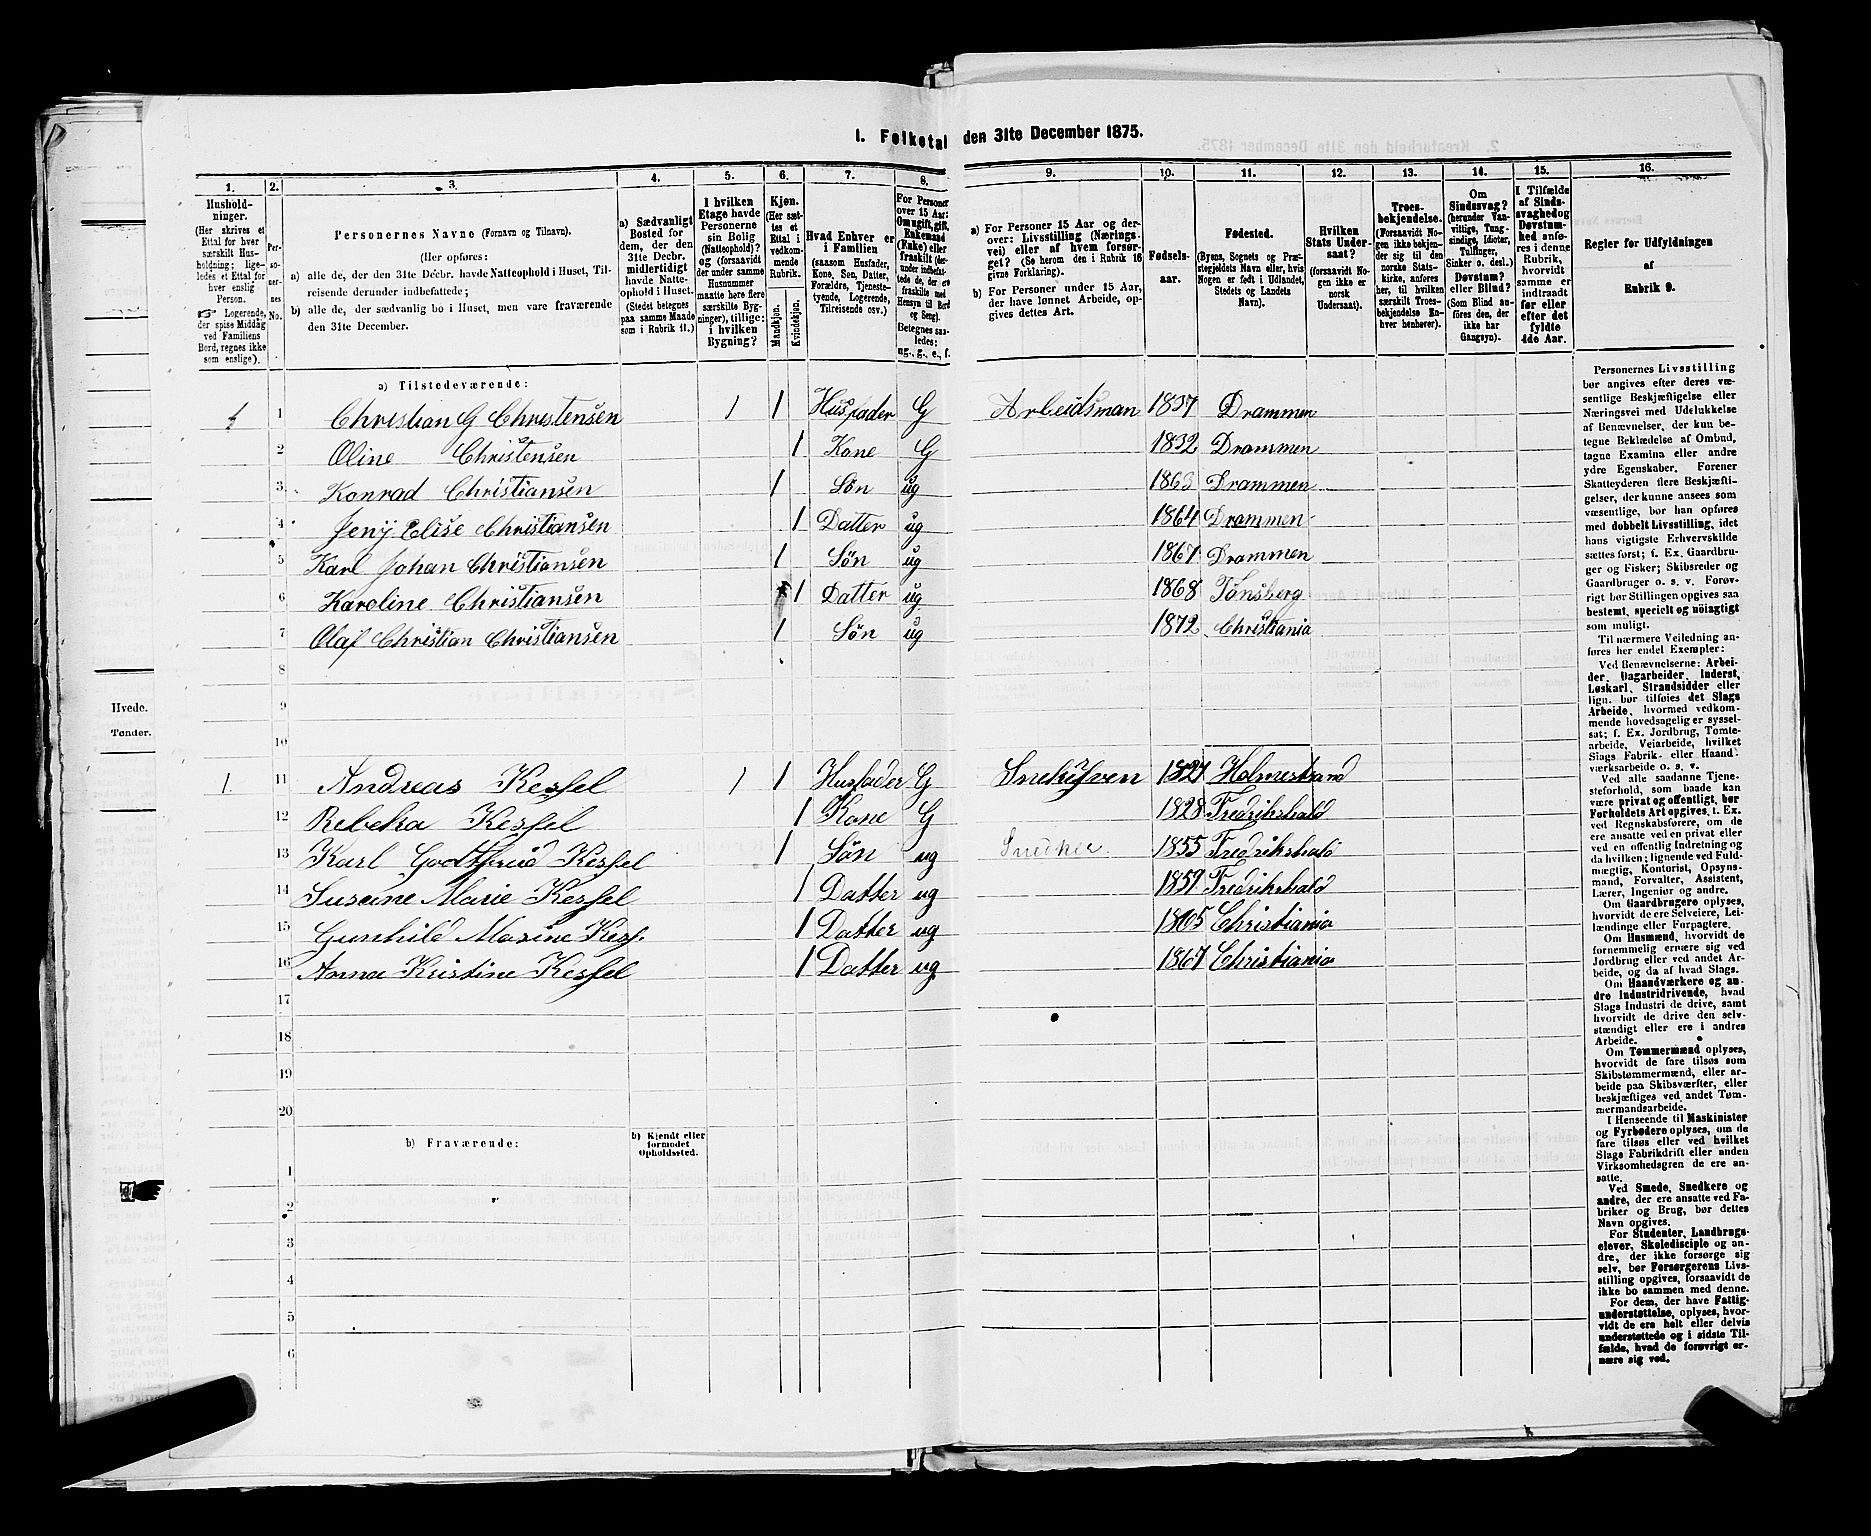 I. Folketal den 31te December 1875.
1. 2. 3. 4. 5. 6. 7. 8. 9. 10. 11. 12. 13. 14. 15. 16.
Hushold-
ninger.
(Her skrives et
Ettal for hver
særskilt Hus-
holdning; lige-
ledes et Ettal for
hver enslig
Person.
☞ Logerende,
der spise Middag
ved Familiens
Bord, regnes ikke
som enslige).
Per-
so-
ner-
nes
No.
Personernes Navne (Fornavn og Tilnavn).
(Her opføres:
a) alle de, der den 31te Decbr. havde Natteophold i Huset, Til-
reisende derunder indbefattede;
b) alle de, der sædvanlig bo i Huset, men vare fraværende
den 31te December.
a) Sædvanligt
Bosted for
dem, der den
31te Decbr.
midlertidigt
havde Natte-
ophold i Huset.
(Stedet betegnes
paa samme Maade
som i Rubrik 11.)
I hvilken
Etage havde
Personerne
sin Bolig
(Natteophold)?
og (forsaavidt
der under samme
Husnummer
maatte høre flere
særskilte Byg-
ninger), tillige:
i hvilken
Bygning?
Kjøn.
(Her sæt-
tes et
Ettal i
vedkom-
mende
Rubrik.
Mandkjøn.
Kvindekjøn.
Hvad Enhver er
i Familien
(saasom Husfader,
Kone, Søn, Datter,
Forældre, Tjeneste-
tyende, Logerende,
Tilreisende osv.)
For Personer
over 15 Aar:
Om ugift, gift,
Enkemand
(Enke) eller
fraskilt (der-
under indbefat-
tede de, der ere
fraskilte med
Hensyn til Bord
og Seng).
Betegnes saa-
ledes:
ug., g., e., f.
a) For Personer 15 Aar og der-
over: Livsstilling (Nærings-
vei) eller af hvem forsør-
get? (Se herom den i Rubrik 16
givne Forklaring).
b) For Personer under 15 Aar,
der have lønnet Arbeide, op-
gives dettes Art.
Fødsels-
aar.
Fødested.
(Byens, Sognets og Præ-
stegjeldets Navn eller, hvis
Nogen er født i Udlandet,
Stedets og Landets
Navn).
Hvilken
Stats Under-
saat?
(forsaavidt No-
gen ikke er
norsk
Undersaat).
Troes-
bekjendelse.
(Forsaavidt No-
gen ikke bekjen-
der sig til den
norske Stats-
kirke, anføres
her, til hvilken
særskilt Troes-
bekjendelse En-
hver henhører).
Om
Sindssvag?
(herunder Van-
vittige, Tung-
sindige, Idioter,
Tullinger,
Sinker o. desl.)
Døvstum?
eller Blind?
(Som Blind an-
føres den, der
ikke har
Gangsyn).
I Tilfælde
af Sinds-
svaghed og
Døvstum-
hed anfø-
res i denne
Rubrik,
hvorvidt
samme er
indtraadt
før eller
efter det
fyldte
4de Aar.
Regler for Udfyldningen
af
Rubrik 9.
a) Tilstedeværende:
1 1 Christian G Christensen 1 1 Husfader G Arbeidsman 1837 Drammen
2 Oline Christensen 1 Kone G 1832 Drammen
3 Konrad Christiansen 1 Søn ug 1863 Drammen
4 Jenÿ Elise Christiansen 1 Datter ug 1864 Drammen
5 Karl Johan Christiansen 1 Søn ug 1867 Drammen
6 Karoline Christiansen 1 Datter ug 1868 Tønsberg
7 Olaf Christian Christiansen 1 Søn ug 1872 Christiania
8
9
10
1. 11 Andreas Kessel 1 1 Husfader G 1827 Holmestrand
12 Rebeka Kessel 1 Kone G 1828 Fredrikshald
13 Karl Godtfrid Kessel 1 Søn ug 1855 Fredrikshald
14 Marie Kessel 1 Datter ug 1859 Fredrikshald
15 Gunhild Masine Kess. 1 Datter ug 1865 Christiania
16 Anna Kristine Kessel 1 Datter ug 1867 Christiania
17
18
19
20
b) Fraværende:
b) Kjendt eller
formodet
Opholdssted.
1
2
3
4
5
6
Personernes Livsstilling
bør angives efter deres væ-
sentlige Beskjæftigelse eller
Næringsvei med Udelukkelse
af Benævnelser, der kun be-
tegne Beklædelse af Ombud,
tagne Examina eller andre
ydre Egenskaber. Forener
Skatteyderen flere Beskjæfti-
gelser, der kunne ansees som
væsentlige, bør han opføres
med dobbelt Livsstilling, idet
hans vigtigste Erhvervskilde
sættes først; f. Ex. Gaardbru-
ger og Fisker; Skibsreder og
Gaardbruger o. s. v. Forøv-
rigt bør Stillingen opgives saa
bestemt, specielt og nøiagtigt
som muligt.
Til nærmere Veiledning an-
føres her endel Exempler:
Ved Benævnelserne: Arbei-
der, Dagarbeider, Inderst,
Løskarl, Strandsidder eller
lign. bør tilføies det Slags
Arbeide, hvormed vedkom-
mende hovedsagelig er syssel-
sat; f. Ex. Jordbrug, Tomte-
arbeide, Veiarbeide, hvilket
Slags Fabrik- eller Haand-
værksarbeide o. s. v.
Ved alle saadanne Tjene-
steforhold, som baade kan
være privat og offentligt, bør
Forholdets Art opgives, f. Ex.
ved Regnskabsførere, om de
ere ansatte ved en privat eller
ved en offentlig Indretning og
da hvilken; lignende ved Fuld-
mægtig, Kontorist, Opsyns-
mand, Forvalter, Assistent,
Lærer, Ingeniør og andre.
Om Gaardbrugere oplyses,
hvorvidt de ere Selveiere, Lei-
lændinge eller Forpagtere.
Om Husmænd, hvorvidt de
fornemmelig ernære sig ved
Jordbrug eller ved andet Ar-
beide, og da af hvad Slags.
Om Haandværkere og an-
dre Industridrivende, hvad
Slags Industri de drive, samt
hvorvidt de drive den selv-
stændigt eller ere i andres
Arbeide.
Om Tømmermænd oplyses,
hvorvidt de fare tilsøs som
Skibstømmermænd, eller ar-
beide paa Skibsværfter, eller
beskjæftiges ved andet Tøm-
mermandsarbeide.
I Henseende til Maskinister
og Fyrbødere oplyses, om de
fare tilsøs eller ved hvilket
Slags Fabrikdrift eller anden
Virksomhedsgren de ere an-
satte.
Ved Smede, Snedkere og
andre, der ere ansatte ved Fa-
briker og Brug, bør dettes
Navn opgives.
For Studenter, Landbrugs-
elever, Skoledisciple og an-
dre, der ikke forsørge sig
selv, bør Forsørgerens Livs-
stilling opgives, forsaavidt de
ikke bo sammen med denne.
For dem, der have Fattig-
understøttelse, oplyses, hvor-
vidt de ere helt eller delvis
understøttede og i sidste Til-
fælde, hvad de forøvrigt er-
nære sig ved.
Hvede.
Tønder.